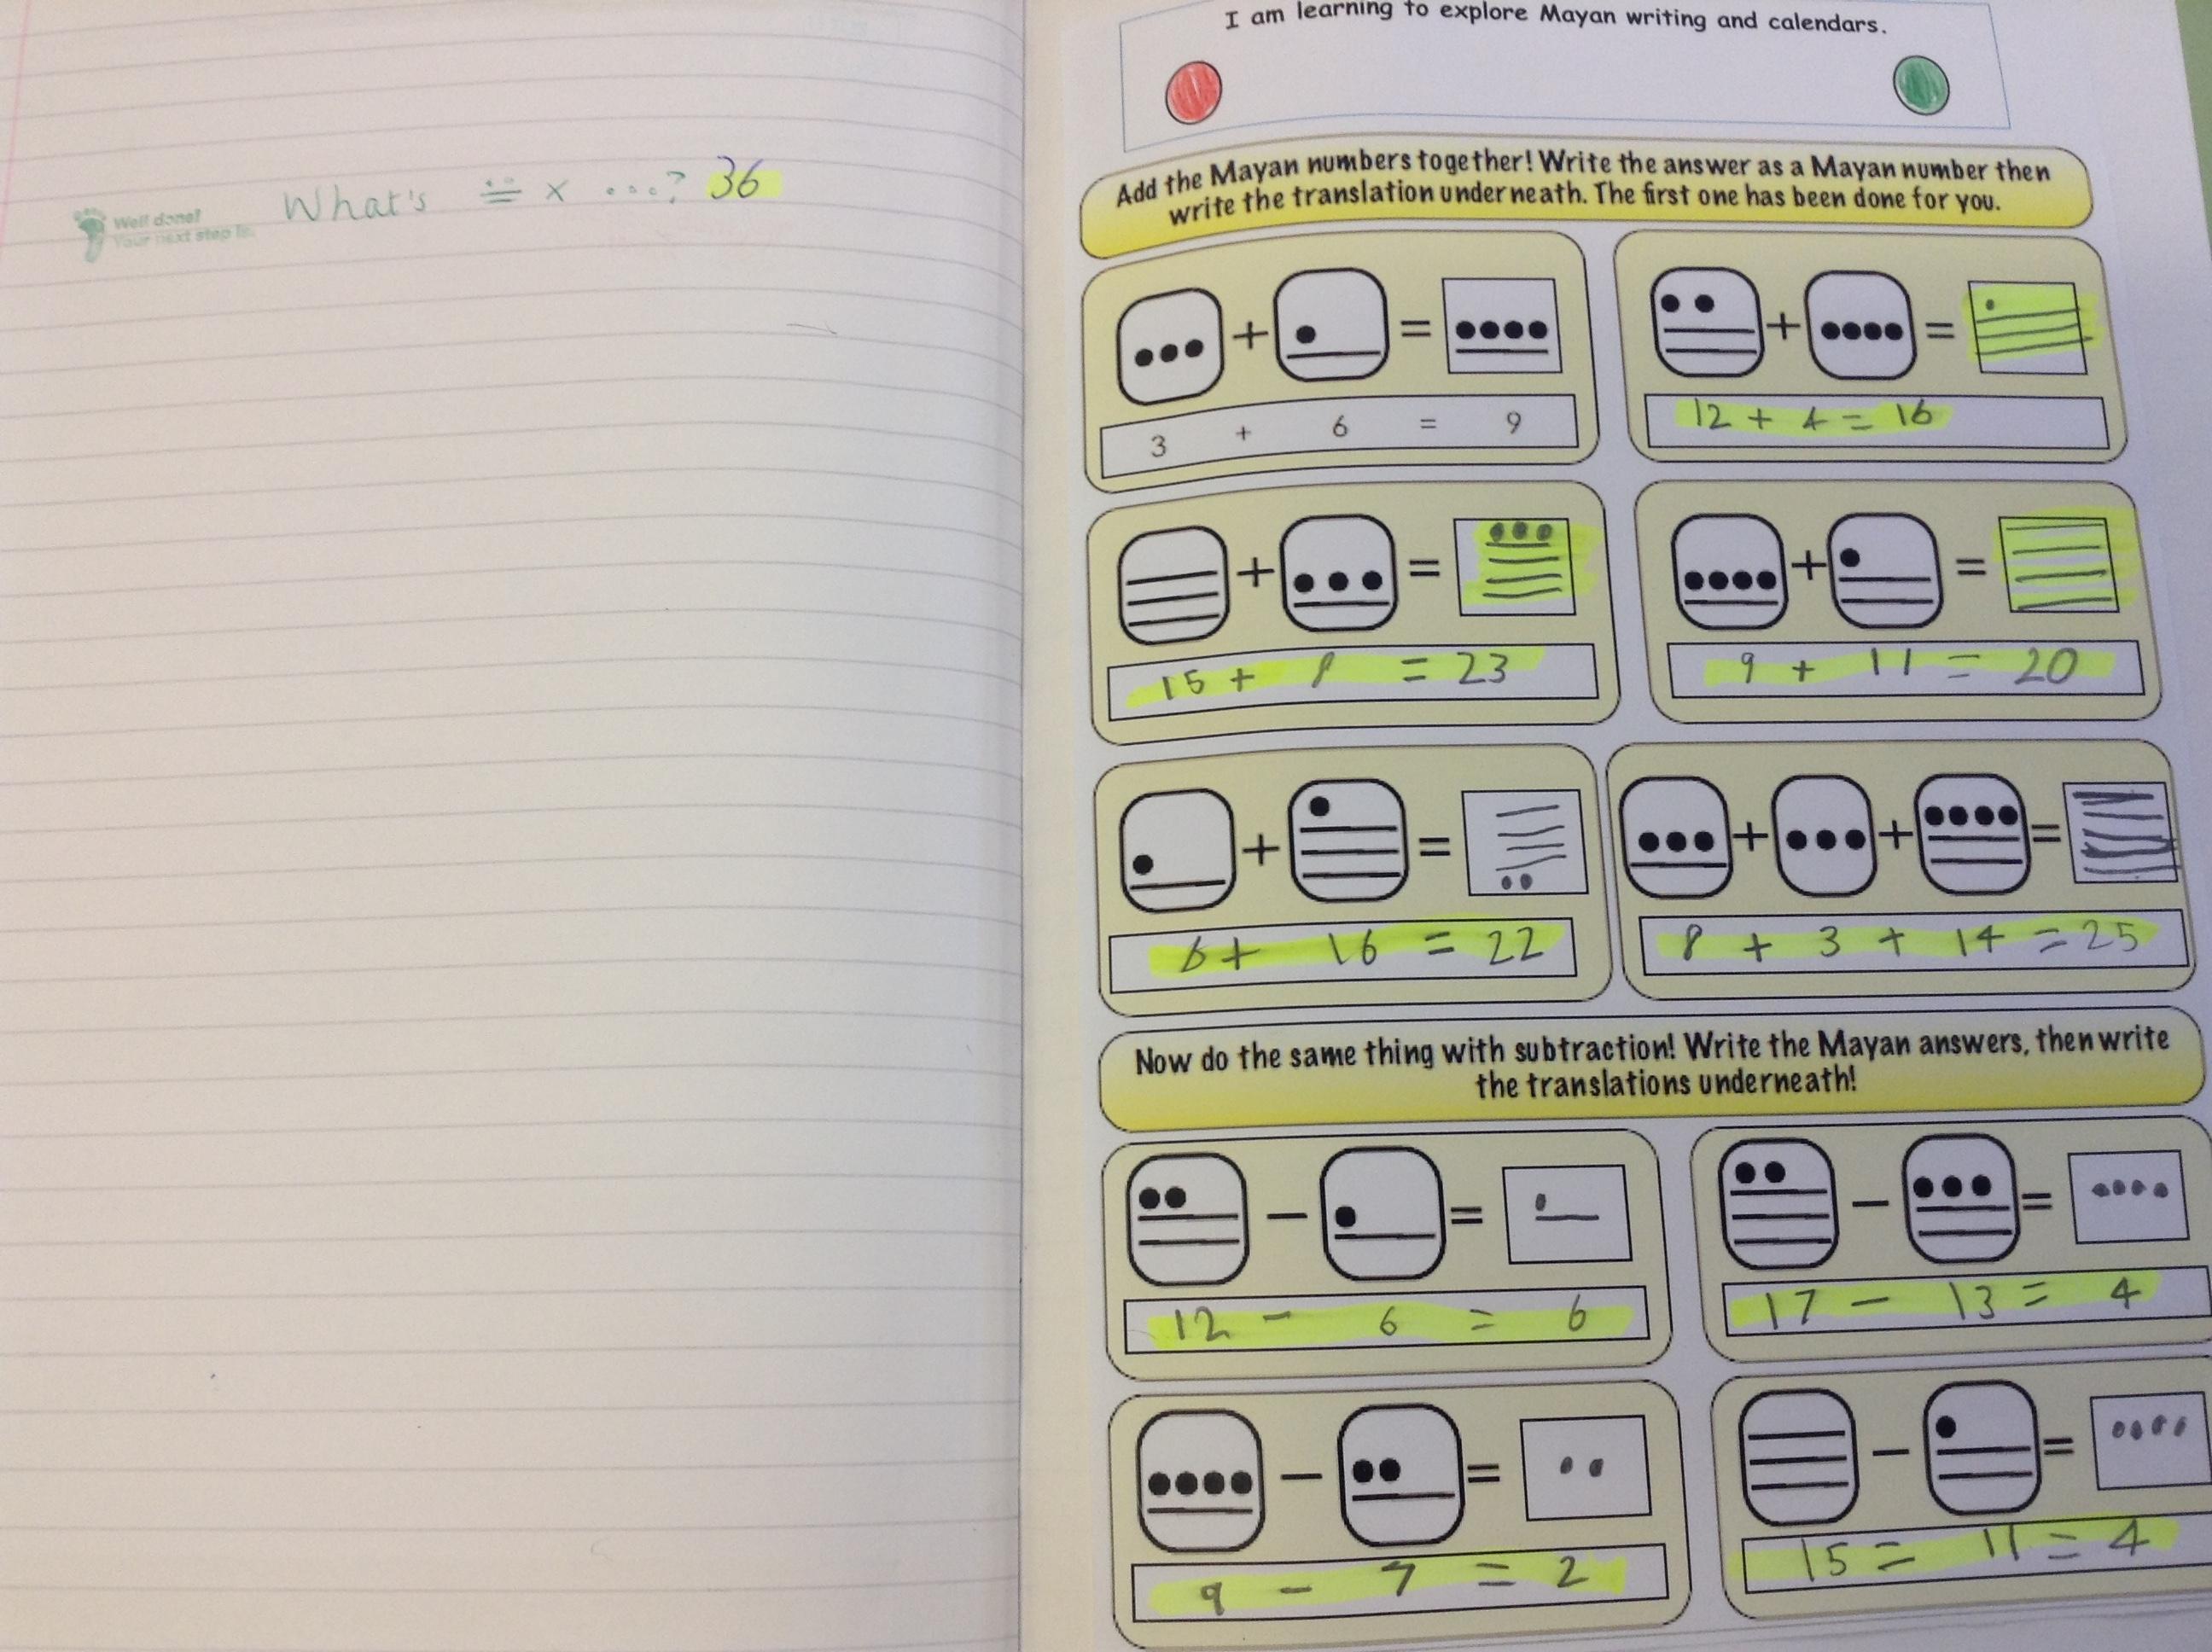 Well done!
Your next step is:
What's × ? 36
I am learning to explore Mayan writing and calendars.
Add the Mayan numbers together! Write the answer as a Mayan number then
write the translation underneath. The first one has been done for you.
+ =
3 + 6 = 9
+ =
12 + 4 = 16
+ =
15 + 8 = 23
+ =
9 + 11 = 20
+ =
6 + 16 = 22
+ + =
8 + 3 + 14 = 25
Now do the same thing with subtraction! Write the Mayan answers, then write
the translations underneath!
− =
12 − 6 = 6
− =
17 − 13 = 4
− =
9 − 7 = 2
− =
15 = 11 = 4